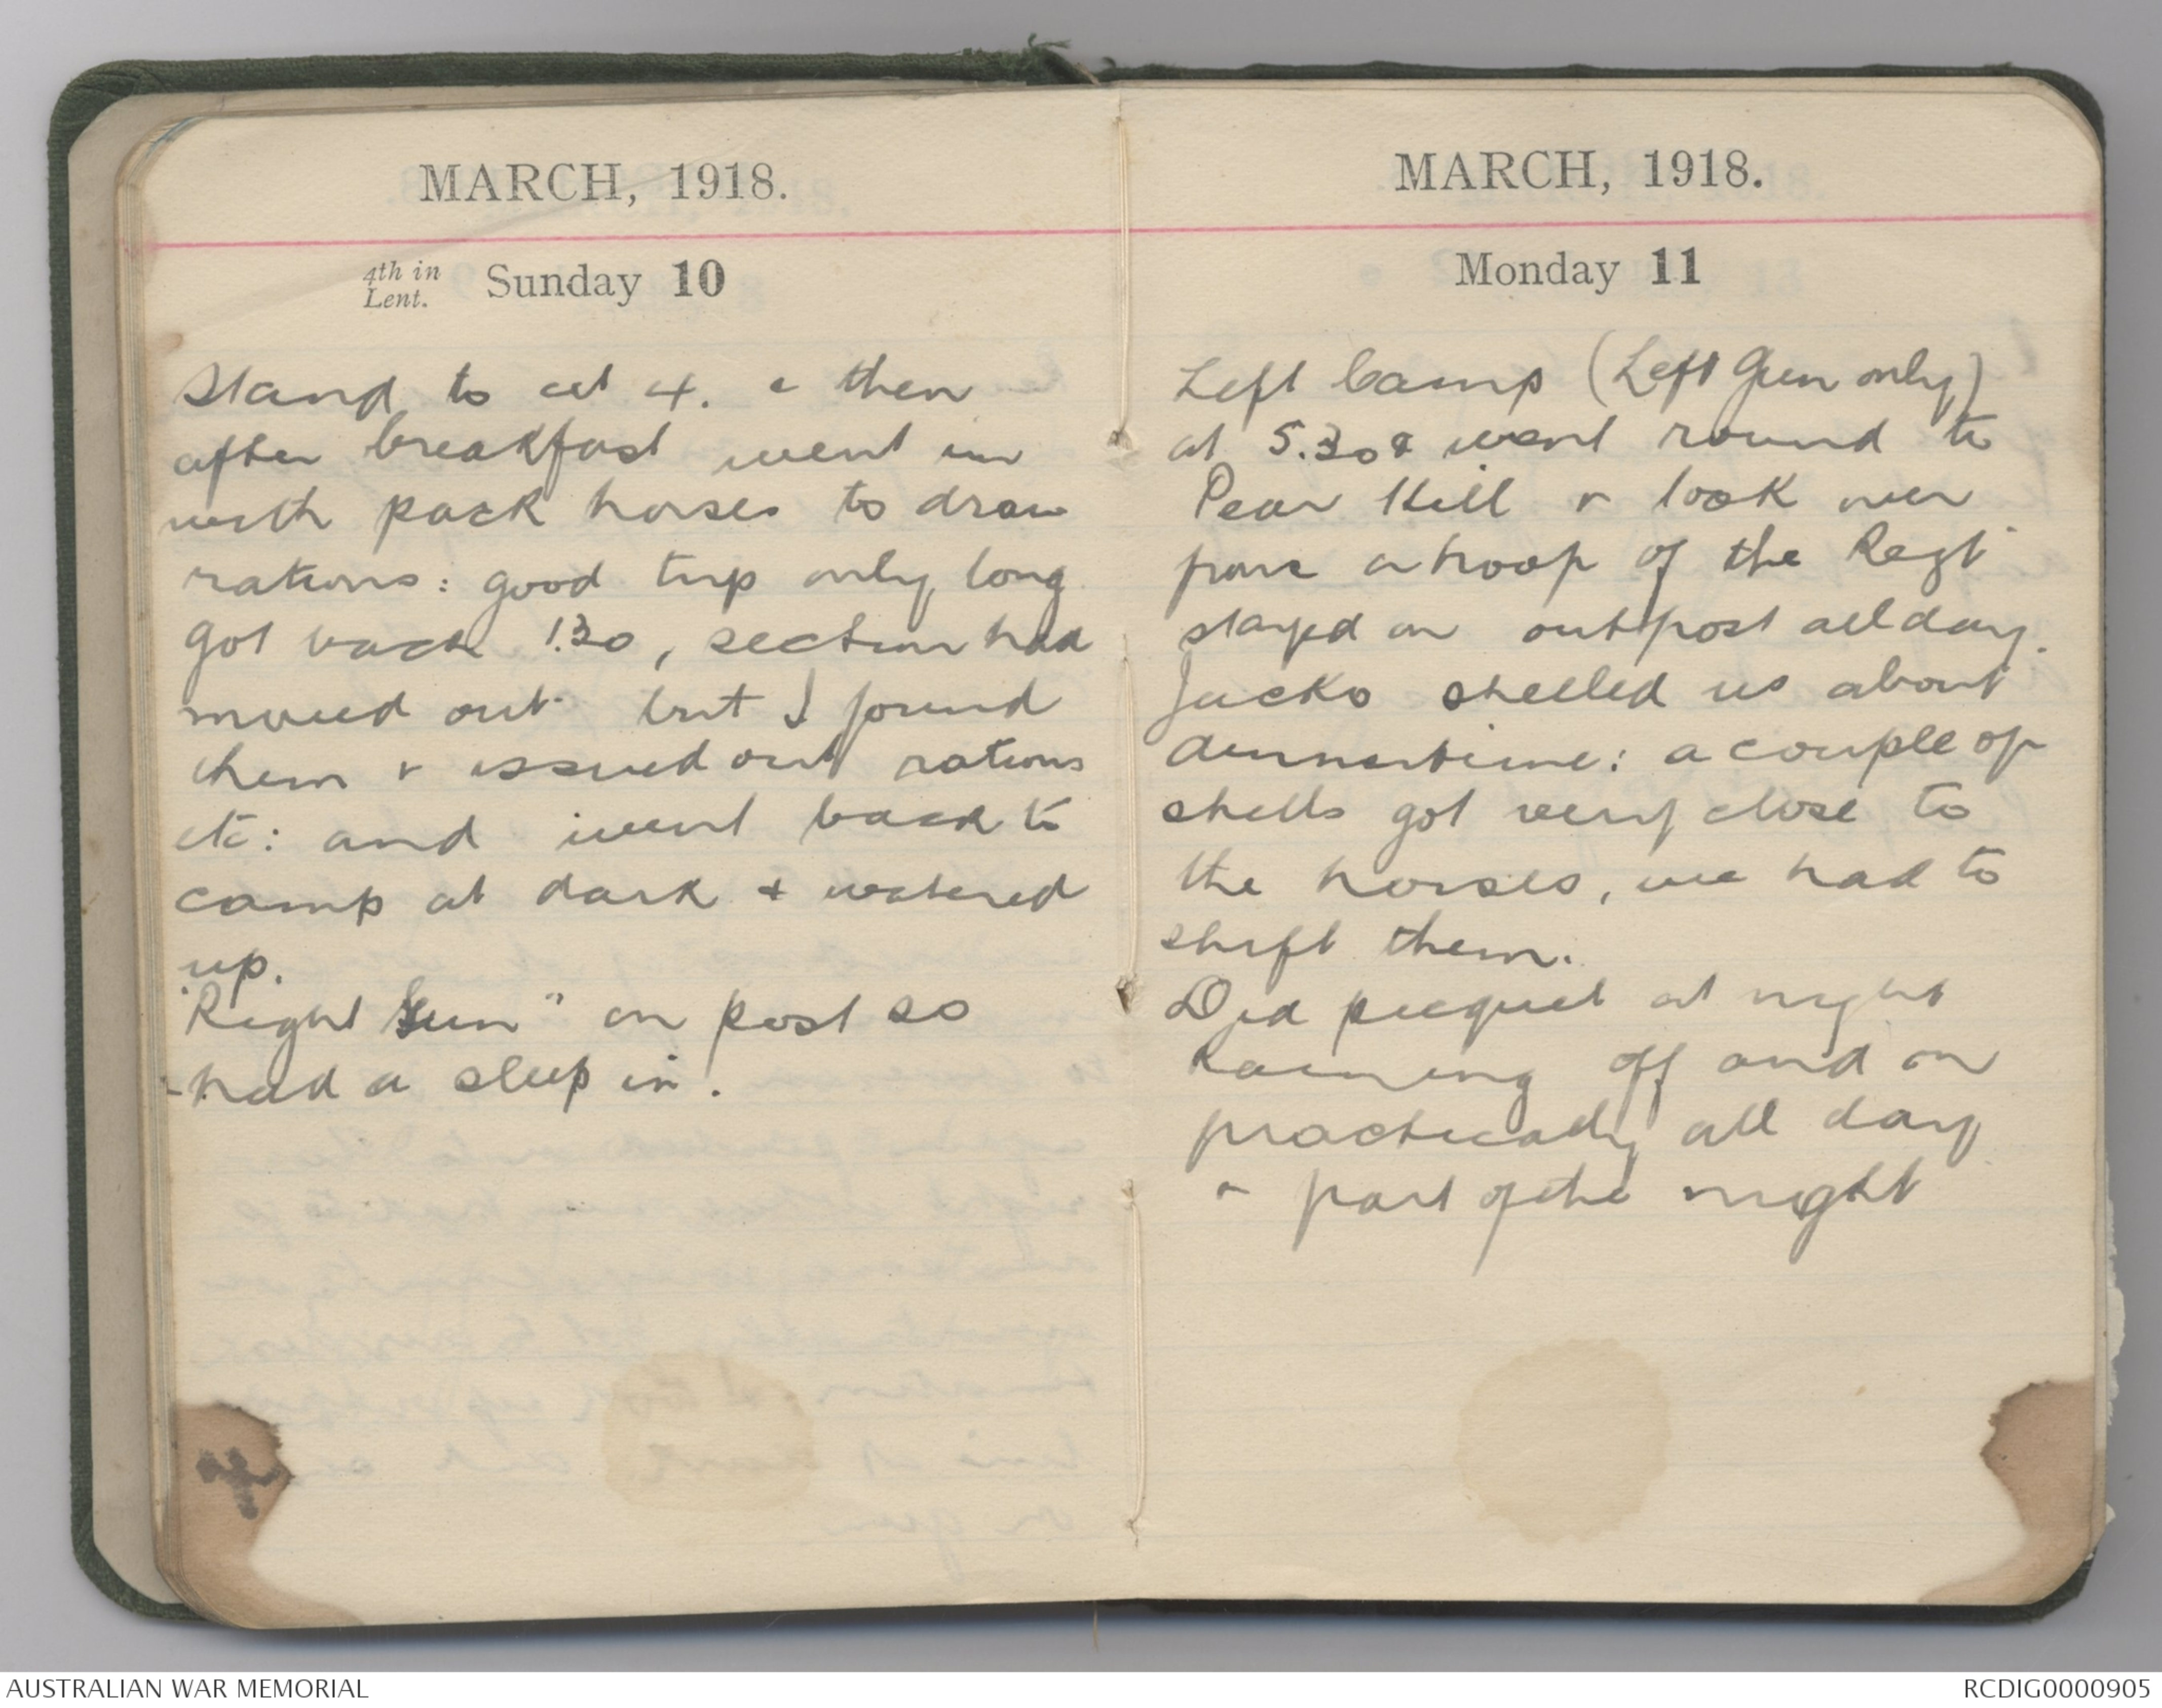 MARCH, 1918.
4th in
Lent.
Sunday 10
Stand to at 4. & then
after breakfast went in
with pack horses to draw
rations: good trip only long
got back 1.30, section had
moved out but I found
them & issued out rations
etc: and went back to
camp at dark & watered
up.
"Right Gun" on post so
had a sleep in.
MARCH, 1918.
Monday 11
Left Camp (Left Gun only)
at 5.30 & went round to
Pear Hill & took over
from a troop of the Regt
stayed on outpost all day.
Jacko shelled us about
dinnertime: a couple of
shells got very close to
the horses, we had to
shift them.
Did picquet at night
Raining off and on
practically all day
& part of the night
AUSTRALIAN WAR MEMORIAL
RCDIG0000905